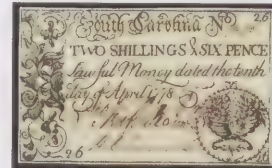 South Carolina No
TWO SHILLINGS & SIX PENCE
Lawful Money dated the tenth
day of April 1778
2 6
2 6